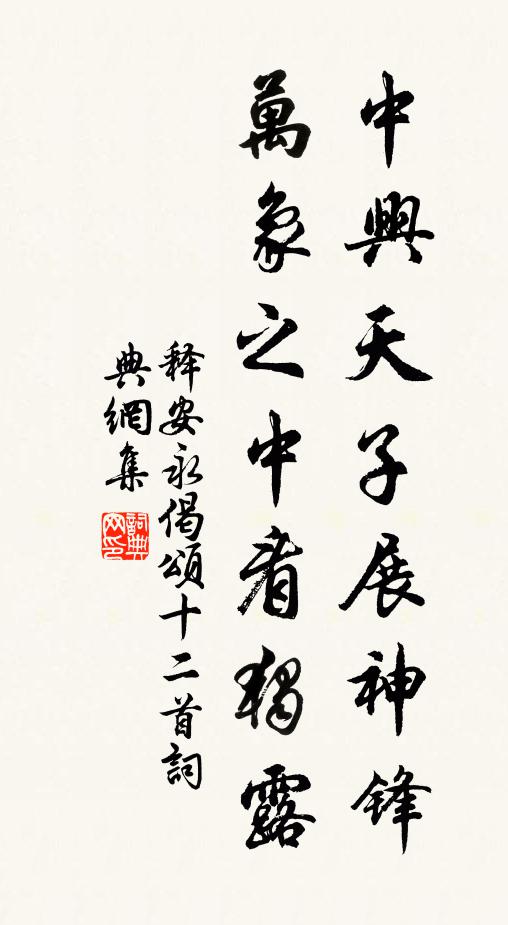 中興天子展神锋
萬象之中看獨露
释安永偈頌十二首詞
典網集
詞典
网印